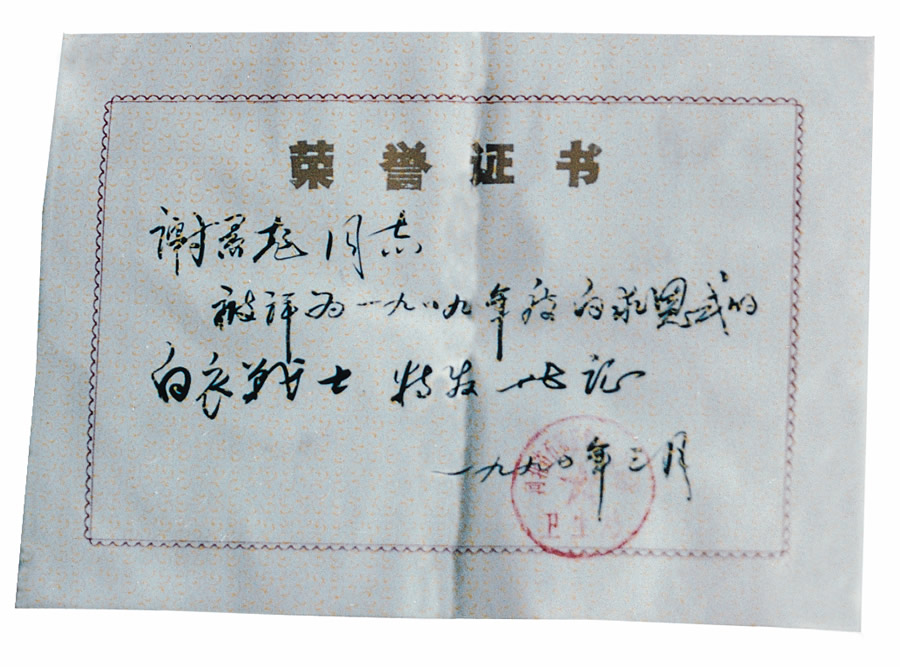 荣誉证书
谢君彪同志
被评为一九八九年度白求恩式的
白衣战士 特发此证
一九九〇年三月
卫生